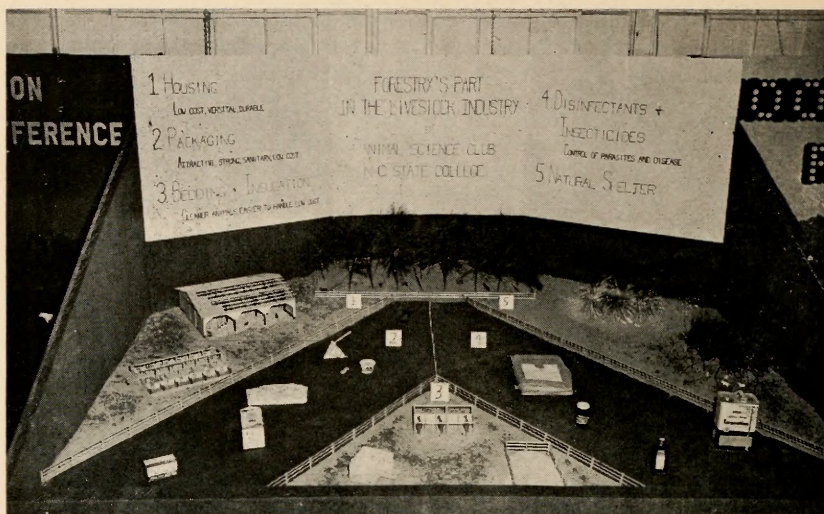 ON
FFERENCE
1 HOUSING
LOW COST, VERSITAL, DURABLE
2 PACKAGING
ATTRACTIVE, STRONG, SANITARY, LOW COST
3. BEDDING + INSULATION
CLEANER ANIMALS, EASIER TO HANDLE, LOW COST
FORESTRY'S PART
IN THE LIVESTOCK INDUSTRY
BY
ANIMAL SCIENCE CLUB
N·C STATE COLLEGE
4 DISINFECTANTS +
INSECTICIDES
CONTROL OF PARASITES AND DISEASE
5 NATURAL SHELTER
1
5
2
4
3